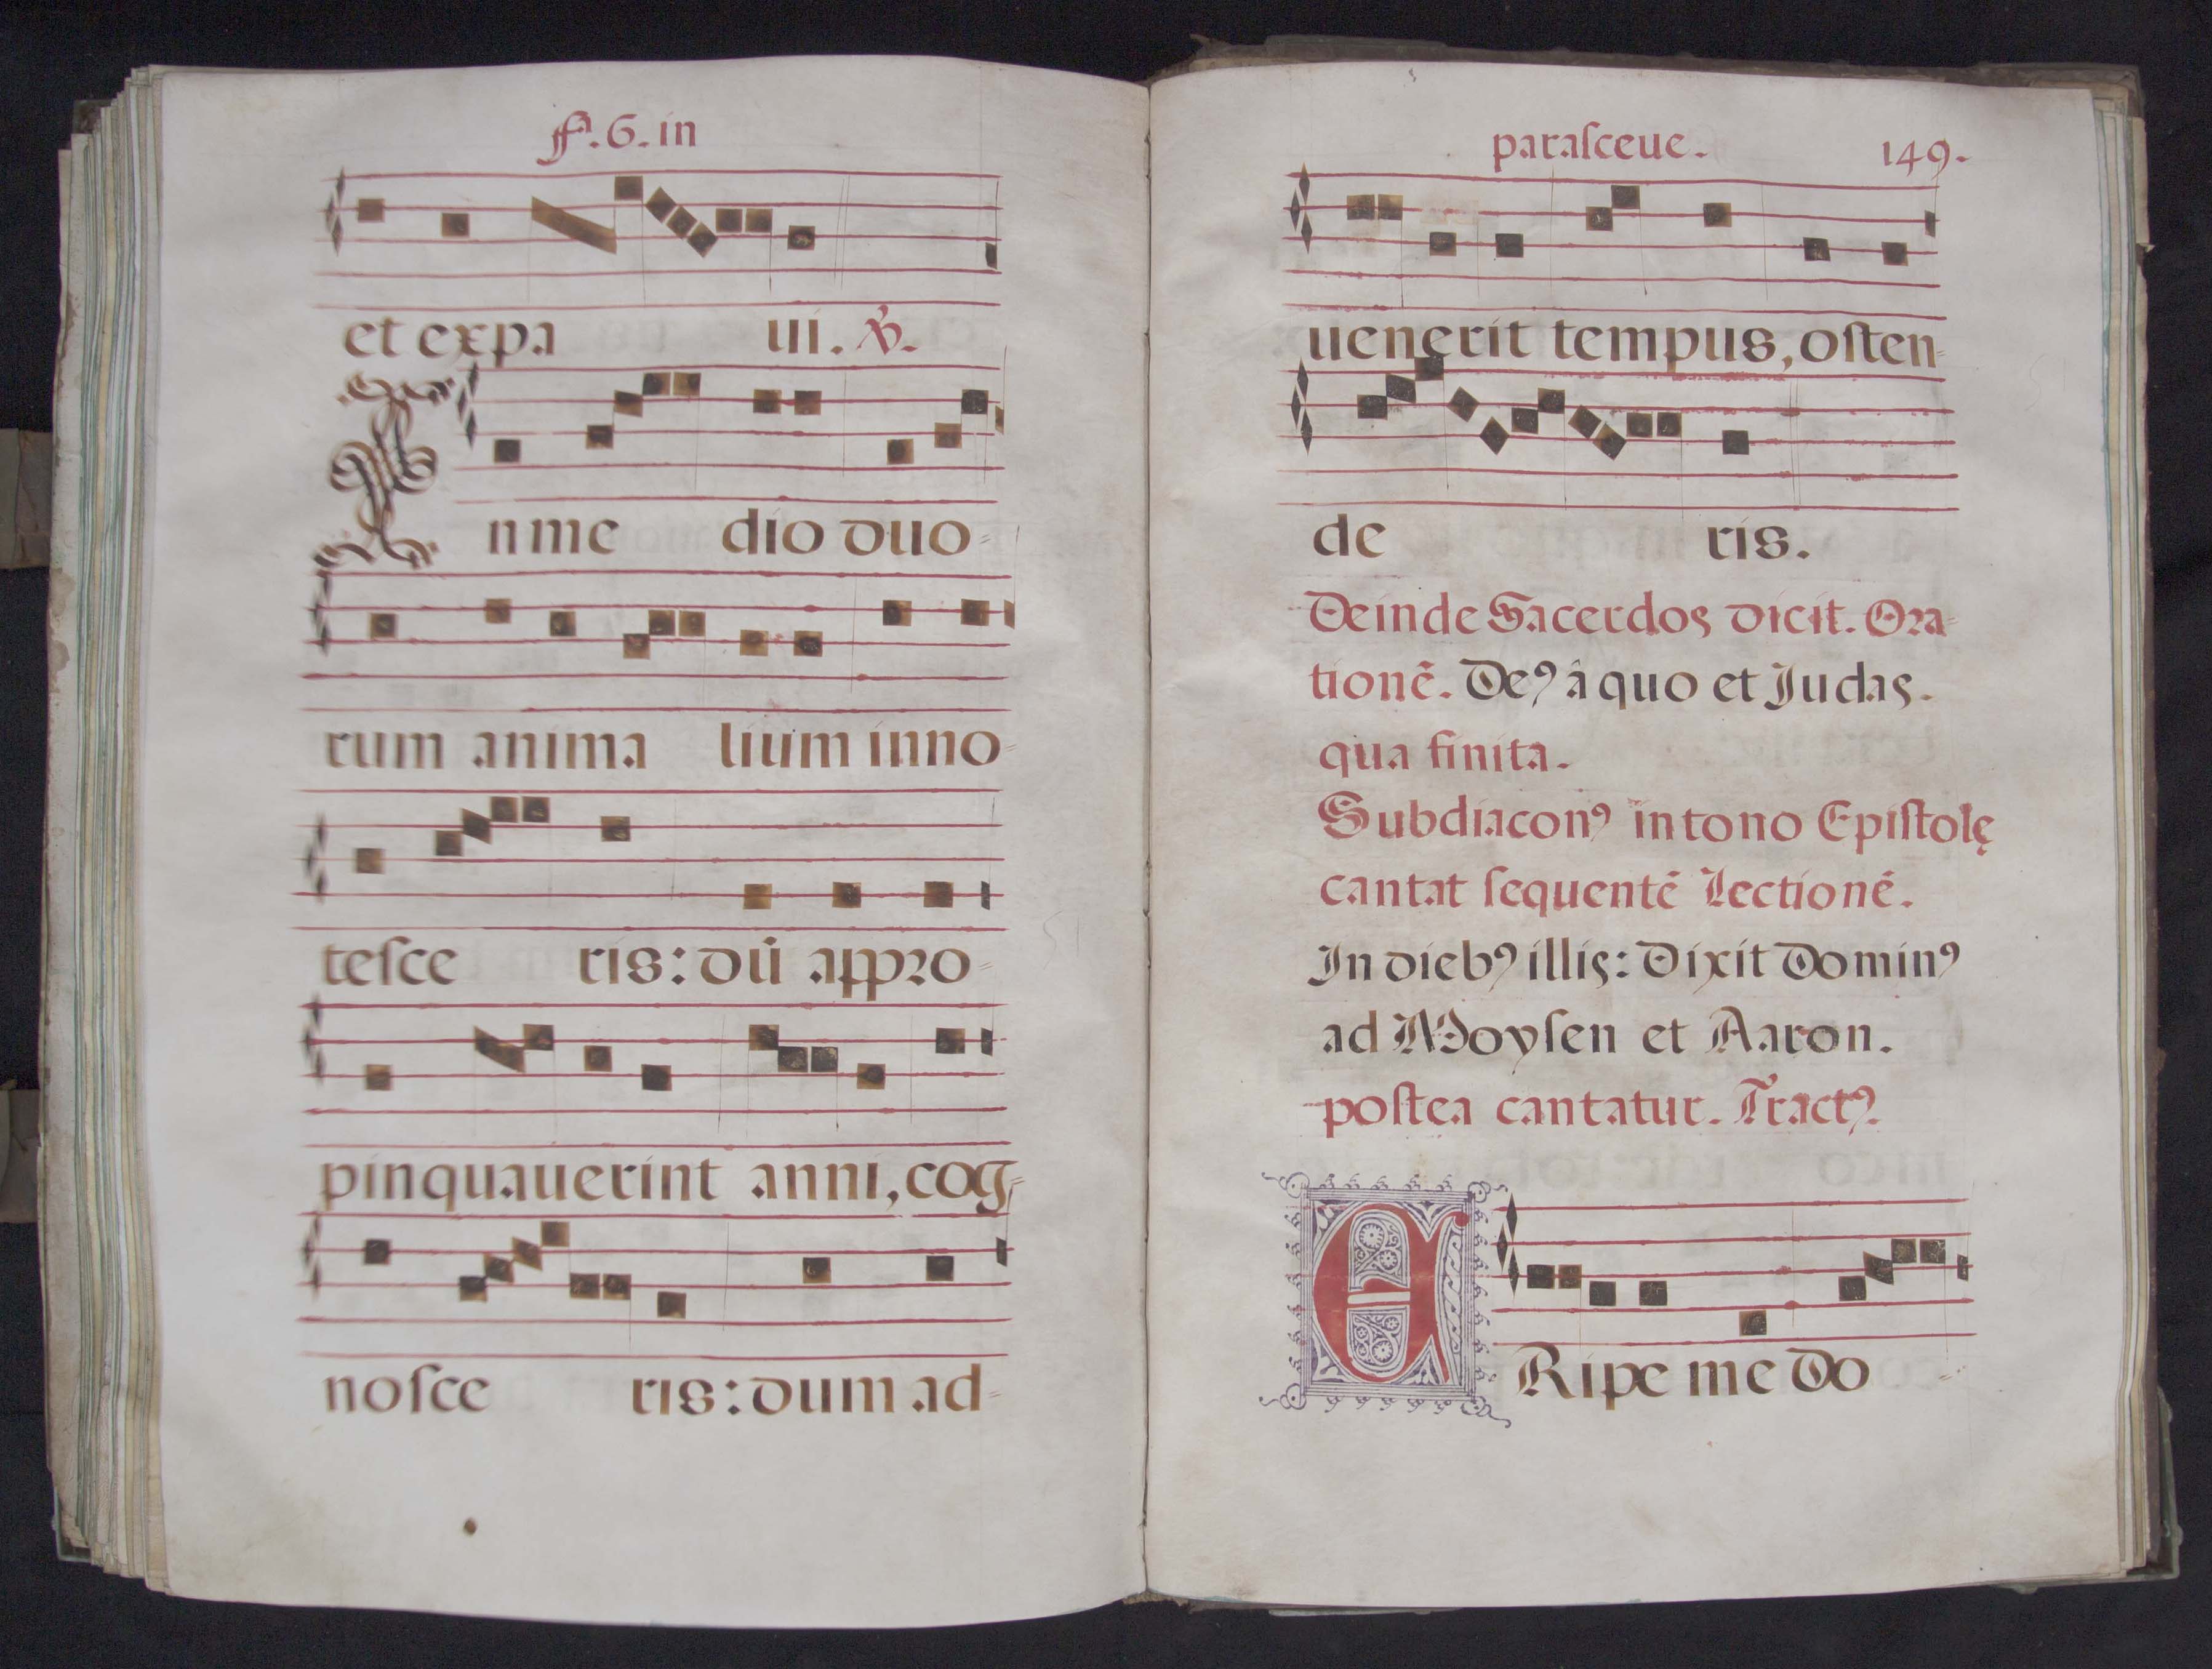 f. 6. in
et expa ui. ℣.
In me dio duo-
rum anima lium inno-
tesce ris: dū appro-
pinquauerint anni, cog-
nosce ris: dum ad-
parasceue. 149.
uenerit tempus, osten-
de ris.
Deinde Sacerdos dicit. Ora-
tionē. Deꝰ à quo et Judas.
qua finita.
Subdiaconꝰ in tono Epistolę
cantat sequentē Lectionē.
In diebꝰ illis: Dixit Dominꝰ
ad Moysen et Aaron.
postea cantatur. Tractꝰ.
ERipe me Do-